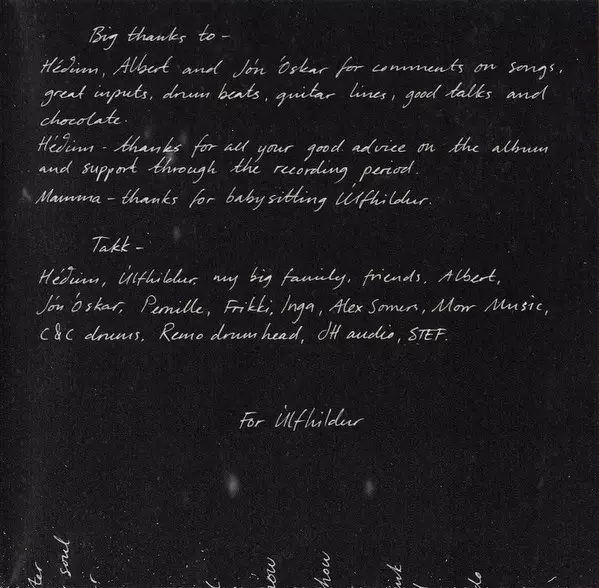 Big thanks to -
Héðinn, Albert and Jón Óskar for comments on songs,
great inputs, drum beats, guitar lines, good talks and
chocolate.
Héðinn - thanks for all your good advice on the album
and support through the recording period.
Mamma - thanks for babysitting Úlfhildur.
Takk -
Héðinn, Úlfhildur, my big family, friends, Albert,
Jón Óskar, Pernille, Frikki, Inga, Alex Somers, Morr Music,
C&C drums, Remo drumhead, JH audio, STEF.
For Úlfhildur
soul
how